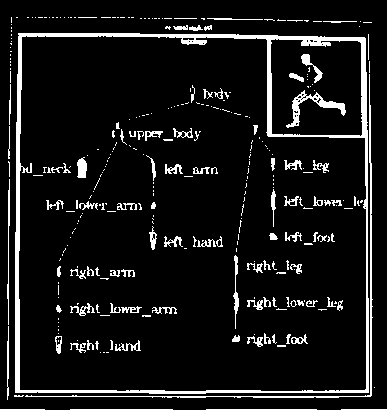 body
upper_body
hd_neck
left_arm
left_leg
left_lower_arm
left_lower_leg
left_hand
left_foot
right_arm
right_leg
right_lower_arm
right_lower_leg
right_hand
right_foot